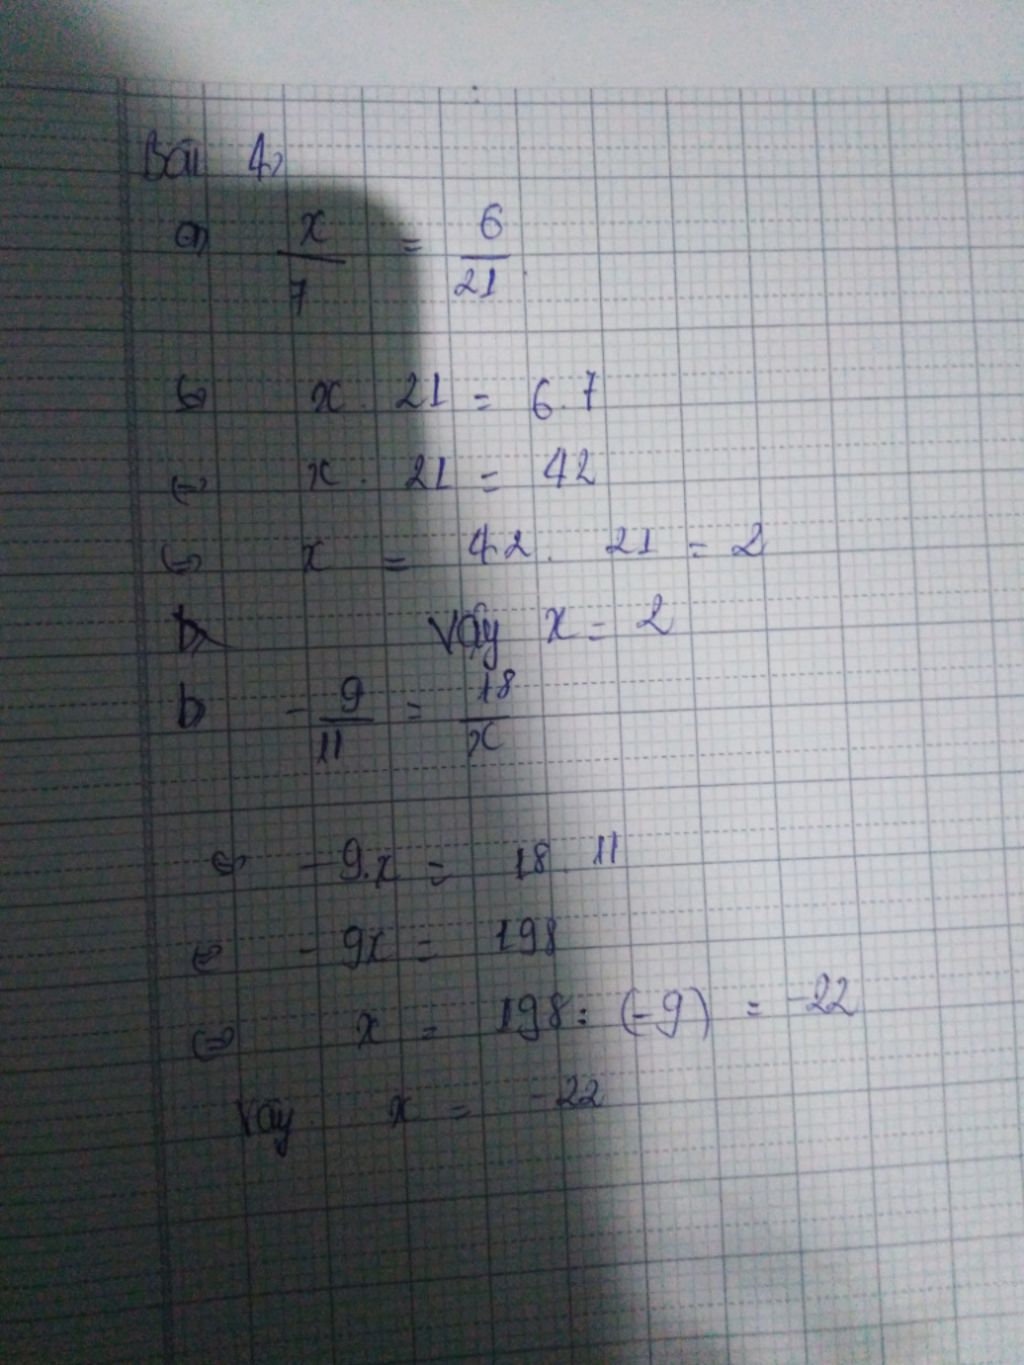 Bài 4
a) x/7 = 6/21
⇔ x . 21 = 6.7
⇔ x . 21 = 42
⇔ x = 42 . 21 = 2
Vậy x = 2
b) -9/11 = 18/x
⇔ -9.x = 18.11
⇔ -9x = 198
⇔ x = 198 : (-9) = -22
Vậy x = -22